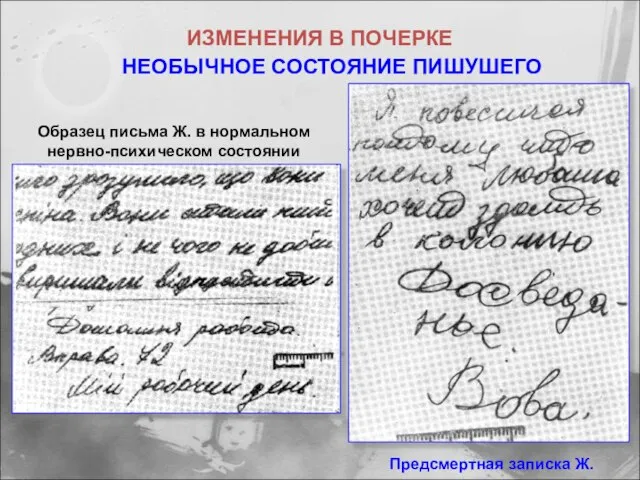 ИЗМЕНЕНИЯ В ПОЧЕРКЕ
НЕОБЫЧНОЕ СОСТОЯНИЕ ПИШУШЕГО
Образец письма Ж. в нормальном
нервно-психическом состоянии
зрозуміло, що вони
Вони стали
і не чого не доби
вирішили відпростити
Домашня работа.
Вправа 72
Мій рабочий день.
Я повесился
потдому что
меня Любаша
хочет здать
в колонию
Досведа-
нье.
Вова.
Предсмертная записка Ж.